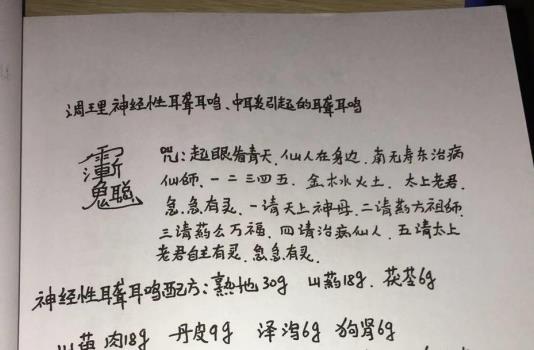 调理神经性耳聋耳鸣、中耳炎引起的耳聋耳鸣
咒:起眼看青天、仙人在身边、南无寿东治病
仙师、一二三四五、金木水火土、太上老君、
急急有灵、一请天上神母、二请药方祖师、
三请药么万福、四请治病仙人、五请太上
老君自主有灵、急急有灵、
神经性耳聋耳鸣配方:熟地30g 山药18g、茯苓6g
山萸肉18g 丹皮9g 泽泻6g 狗肾6g